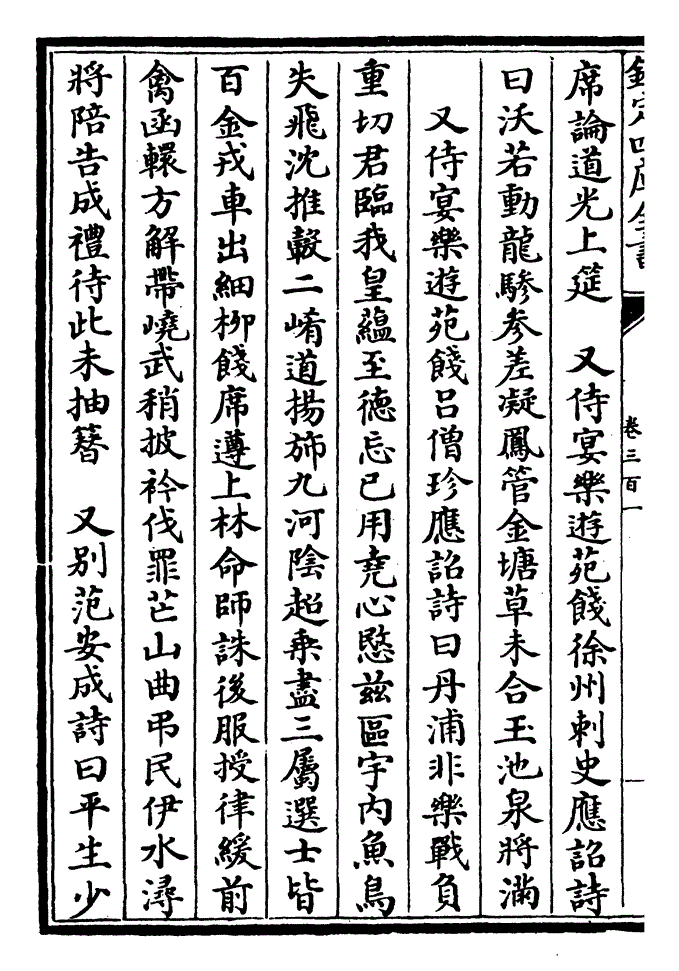 欽定四庫全書
卷三百一
席論道光上筵　又侍宴樂遊苑餞徐州刺史應詔詩
曰沃若動龍驂參差凝鳳管金塘草未合玉池泉將滿
又侍宴樂遊苑餞吕僧珍應詔詩曰丹浦非樂戰負
重切君臨我皇蘊至德忘已用堯心愍兹區宇内魚鳥
失飛沈推轂二崤道揚斾九河陰超乗盡三屬選士皆
百金戎車出細栁餞席遵上林命師誅後服授律緩前
禽函轘方解帶嶢武稍披衿伐罪芒山曲弔民伊水潯
將陪告成禮待此未抽簪　又别范安成詩曰平生少